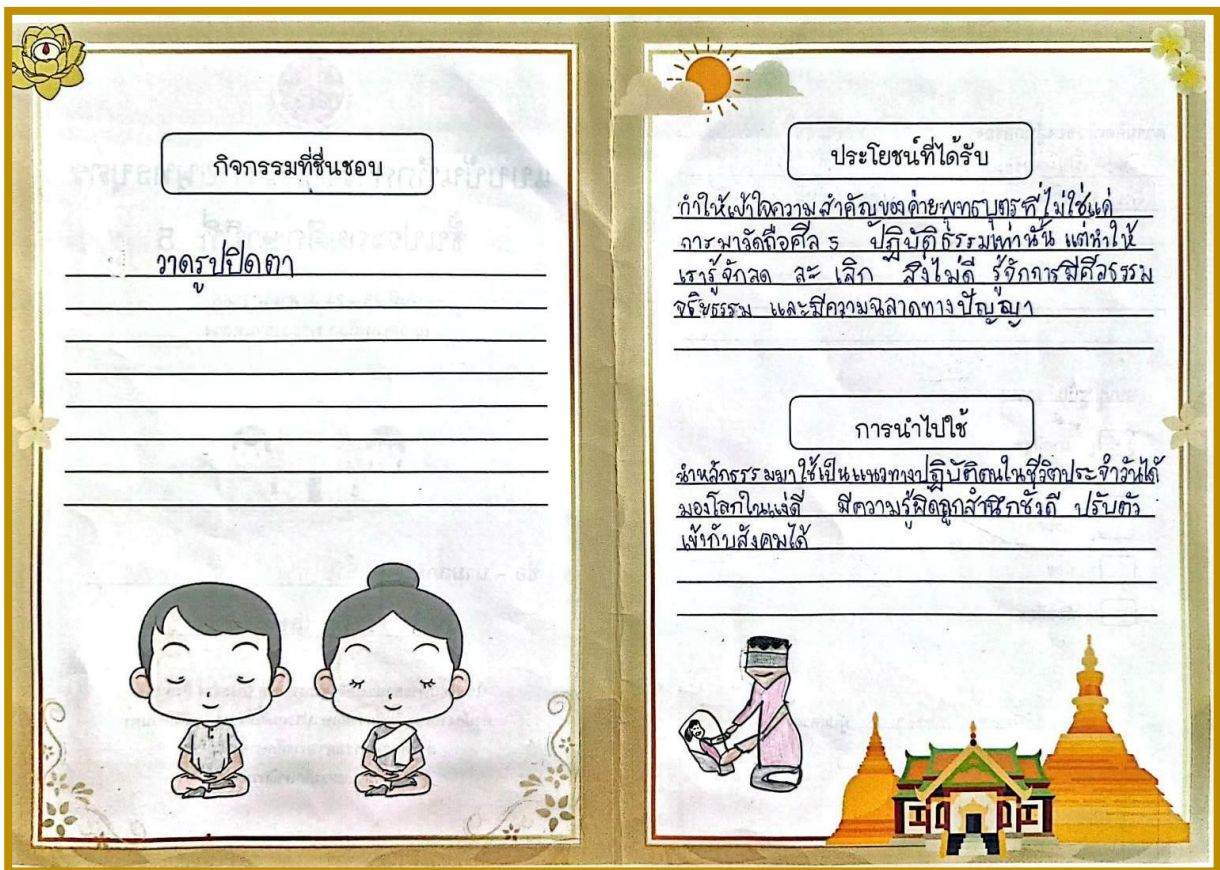 กิจกรรมที่ชื่นชอบ
วาดรูปปิดตา
ประโยชน์ที่ได้รับ
ทำให้เข้าใจความสำคัญของค่ายพุทธบุตรที่ไม่ใช่แค่
การมาวัดถือศีล 5 ปฏิบัติธรรมเท่านั้น แต่ทำให้
เรารู้จักลด ละ เลิก สิ่งไม่ดี รู้จักการมีศีลธรรม
จริยธรรม และมีความฉลาดทางปัญญา
การนำไปใช้
นำหลักธรรมมาใช้เป็นแนวทางปฏิบัติตนในชีวิตประจำวันได้
มองโลกในแง่ดี มีความรู้ผิดถูกสำนึกชั่วดี ปรับตัว
เข้ากับสังคมได้